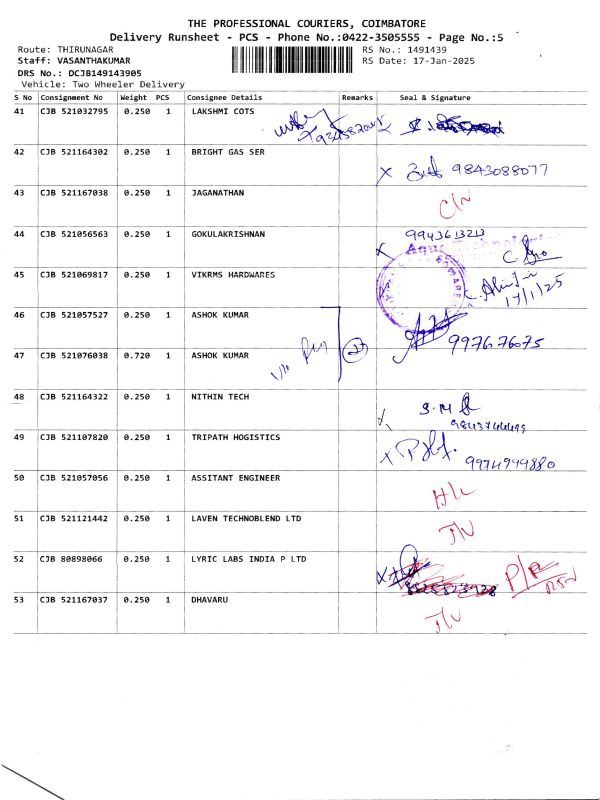 THE PROFESSIONAL COURIERS, COIMBATORE
Delivery Runsheet - PCS - Phone No.:0422-3505555 - Page No.:5
Route: THIRUNAGAR RS No.: 1491439
Staff: VASANTHAKUMAR RS Date: 17-Jan-2025
DRS No.: DCJB149143905
Vehicle: Two Wheeler Delivery
S No Consignment No Weight PCS Consignee Details Remarks Seal & Signature
41 CJB 521032795 0.250 1 LAKSHMI COTS
42 CJB 521164302 0.250 1 BRIGHT GAS SER
9843088077
43 CJB 521167038 0.250 1 JAGANATHAN
C/N
44 CJB 521056563 0.250 1 GOKULAKRISHNAN 9943613213
45 CJB 521069817 0.250 1 VIKRMS HARDWARES
17/1/25
46 CJB 521057527 0.250 1 ASHOK KUMAR
997676075
47 CJB 521076038 0.720 1 ASHOK KUMAR
48 CJB 521164322 0.250 1 NITHIN TECH
49 CJB 521107820 0.250 1 TRIPATH HOGISTICS
9974999880
50 CJB 521057056 0.250 1 ASSITANT ENGINEER
H/L
51 CJB 521121442 0.250 1 LAVEN TECHNOBLEND LTD
I/N
52 CJB 80898066 0.250 1 LYRIC LABS INDIA P LTD
P/R
53 CJB 521167037 0.250 1 DHAVARU
I/N